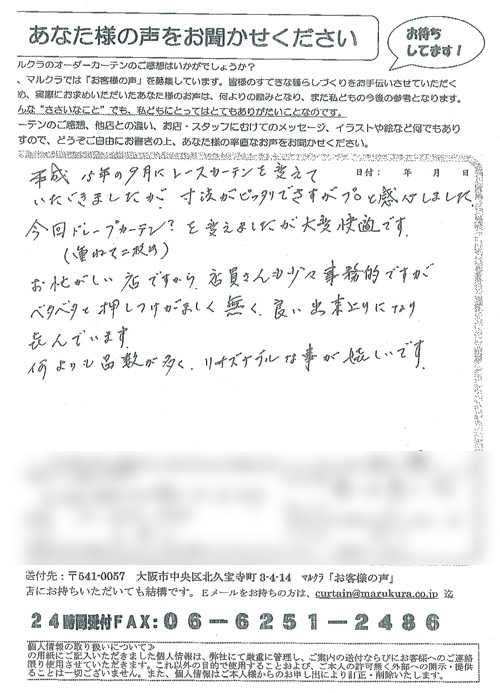 あなた様の声をお聞かせください
お待ち
してます!
ルクラのオーダーカーテンのご感想はいかがでしょうか?
、マルクラでは「お客様の声」を募集しています。皆様のすてきな暮らしづくりをお手伝いさせていただく
め、実際にお求めいただいたあなた様のお声は、何よりの励みとなり、また私どもの今後の参考となります。
んな“ささいなこと”でも、私どもにとってはとてもありがたいことなのです。
ーテンのご感想、他店との違い、お店・スタッフにむけてのメッセージ、イラストや絵など何でもあり
すので、どうぞご自由にお書きの上、あなた様の率直なお声をお聞かせください。
日付: 年 月 日
平成15年の9月にレースカーテンを変えて
いただきましたが 寸法がピッタリでさすがプロと感心しました
今回ドレープカーテン?を変えましたが大変快適です。
(重ねて二枚め)
お忙がしい店ですから、店員さんも少々事務的ですが
ベタベタと押しつけがましく無く、良い出来上りになり
喜んでいます。
何よりも品数が多く、リーズナブルな事が嬉しいです。
送付先:〒541-0057 大阪市中央区北久宝寺町3-4-14 マルクラ「お客様の声」
店にお持ちいただいても結構です。Eメールをお持ちの方は、curtain@marukura.co.jp 迄
24時間受付FAX:06-6251-2486
個人情報の取り扱いについて≫
の用紙にご記入いただきました個人情報は、弊社にて厳重に管理し、ご案内の送付ならびにお客様へのご連絡
限り使用させていただきます。これ以外の目的で使用することおよび、ご本人の許可無く外部への開示・提供
ることは一切ございません。また、個人情報はご本人様からのお申し出により訂正・削除いたします。